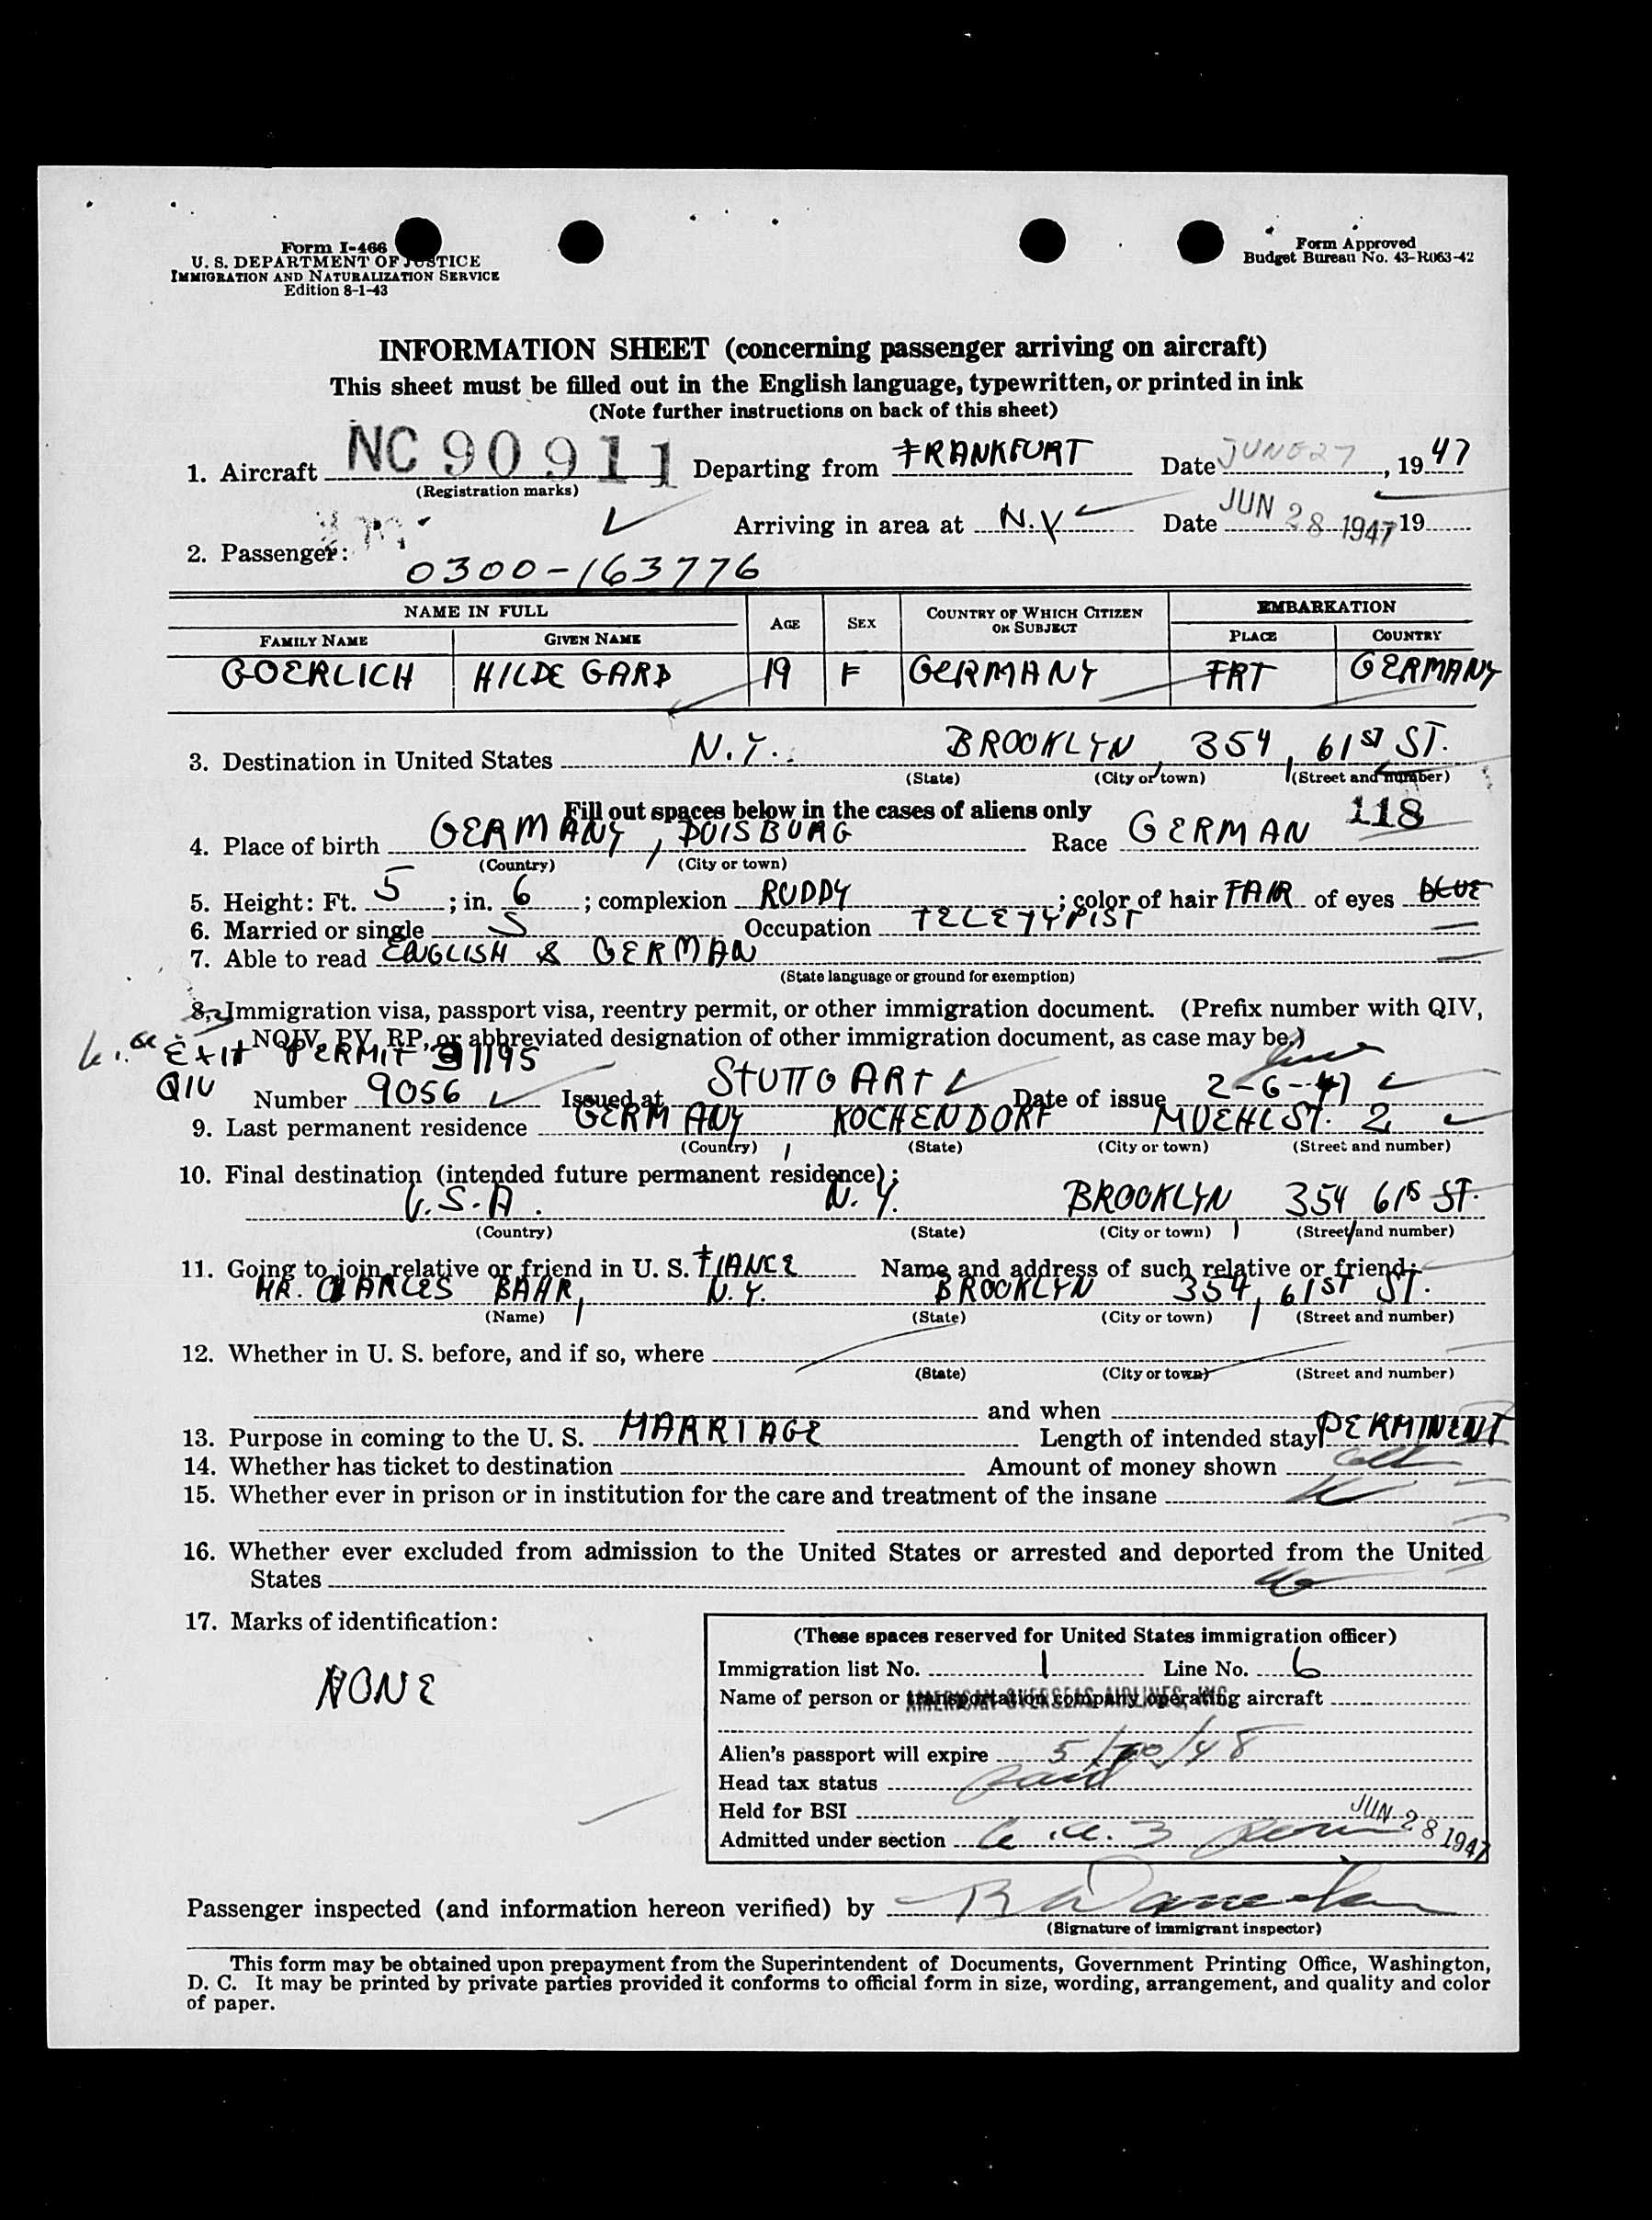 Form I-466
U. S. DEPARTMENT OF JUSTICE
IMMIGRATION AND NATURALIZATION SERVICE
Edition 8-1-43
Form Approved
Budget Bureau No. 43-R063-42
INFORMATION SHEET (concerning passenger arriving on aircraft)
This sheet must be filled out in the English language, typewritten, or printed in ink
(Note further instructions on back of this sheet)
1. Aircraft NC 90911 Departing from FRANKFURT Date JUNE 27, 1947
(Registration marks)
Arriving in area at N.Y. Date JUN 28 1947 19
2. Passenger:
0300-163776
NAME IN FULL AGE SEX COUNTRY OF WHICH CITIZEN OR SUBJECT EMBARKATION
FAMILY NAME GIVEN NAME PLACE COUNTRY
GOERLICH HILDE GARD 19 F GERMANY FRT GERMANY
3. Destination in United States N.Y. BROOKLYN, 354, 61ST ST.
(State) (City or town) (Street and number)
Fill out spaces below in the cases of aliens only 118
4. Place of birth GERMANY, DUISBURG Race GERMAN
(Country) (City or town)
5. Height: Ft. 5; in. 6; complexion RUDDY; color of hair FAIR of eyes BLUE
6. Married or single S Occupation TELETYPIST
7. Able to read ENGLISH & GERMAN
(State language or ground for exemption)
8. Immigration visa, passport visa, reentry permit, or other immigration document. (Prefix number with QIV,
NQIV, PV, RP, or abbreviated designation of other immigration document, as case may be.)
EXIT PERMIT 91195
QIV Number 9056 Issued at STUTTGART Date of issue 2-6-47
9. Last permanent residence GERMANY KOCHENDORF MUEHLST. 2
(Country) (State) (City or town) (Street and number)
10. Final destination (intended future permanent residence):
U.S.A. N.Y. BROOKLYN 354 61ST ST.
(Country) (State) (City or town) (Street and number)
11. Going to join relative or friend in U. S. FIANCE Name and address of such relative or friend:
MR. CHARLES BAHR, N.Y. BROOKLYN 354, 61ST ST.
(Name) (State) (City or town) (Street and number)
12. Whether in U. S. before, and if so, where
(State) (City or town) (Street and number)
and when
13. Purpose in coming to the U. S. MARRIAGE Length of intended stay PERMINENT
14. Whether has ticket to destination Amount of money shown
15. Whether ever in prison or in institution for the care and treatment of the insane
16. Whether ever excluded from admission to the United States or arrested and deported from the United
States
17. Marks of identification:
NONE
(These spaces reserved for United States immigration officer)
Immigration list No. 1 Line No. 6
Name of person or transportation company operating aircraft
AMERICAN OVERSEAS AIRLINES, INC.
Alien's passport will expire 5/20/48
Head tax status paid
Held for BSI
Admitted under section 3 JUN 28 1947
Passenger inspected (and information hereon verified) by
(Signature of immigrant inspector)
This form may be obtained upon prepayment from the Superintendent of Documents, Government Printing Office, Washington,
D. C. It may be printed by private parties provided it conforms to official form in size, wording, arrangement, and quality and color
of paper.